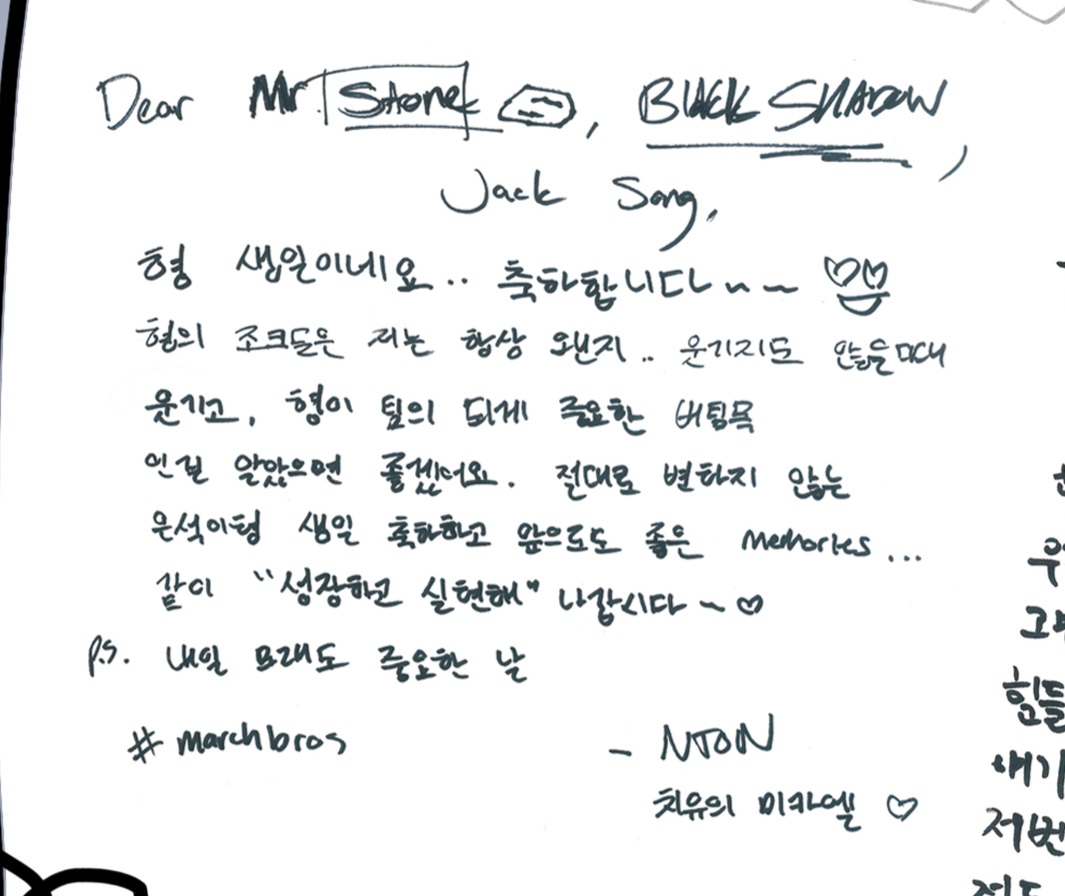 Dear Mr. Stone, BLACK SHADOW,
Jack Song,
형 생일이네요.. 축하합니다~~
형의 조크들은 저는 항상 왠지.. 웃기지도 않는데
웃기고, 형이 팀의 되게 중요한 버팀목
인걸 알았으면 좋겠어요. 절대로 변하지 않는
은석이형 생일 축하하고 앞으로도 좋은 memories...
같이 "성장하고 실현해" 나갑시다~♡
P.S. 내일 모레도 중요한 날
#marchbros
- NTON
치유의 미카엘 ♡
우
힘들
얘기
저번